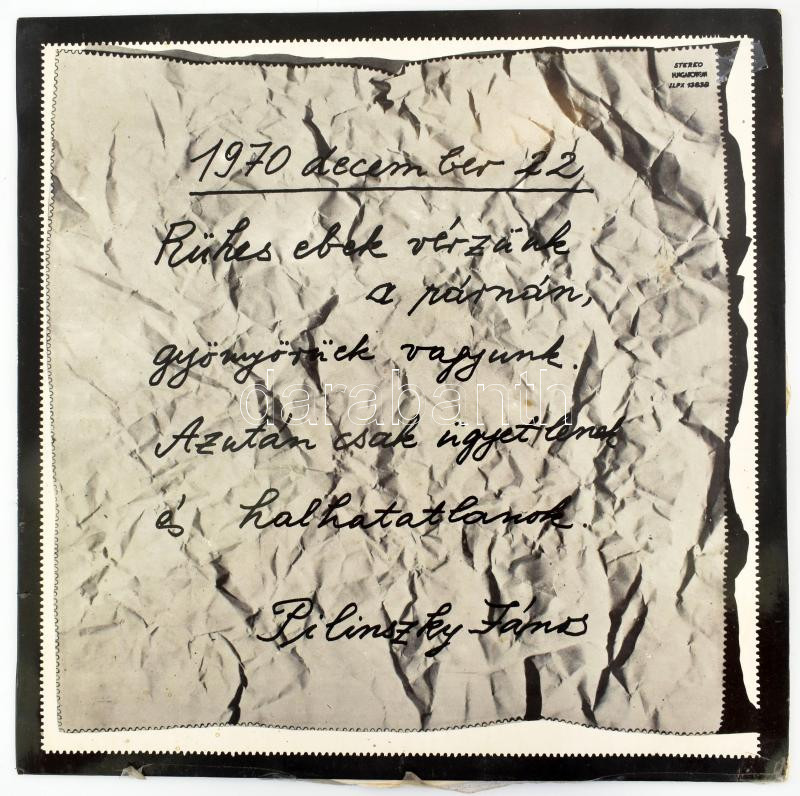 STEREO
HUNGAROTON
SLPX 13838
1970 december 22
Rühes ebek vérzünk
a párnán,
gyönyörüek vagyunk.
darabanth
Azután csak ügyetlenek
és halhatatlanok.
Pilinszky János